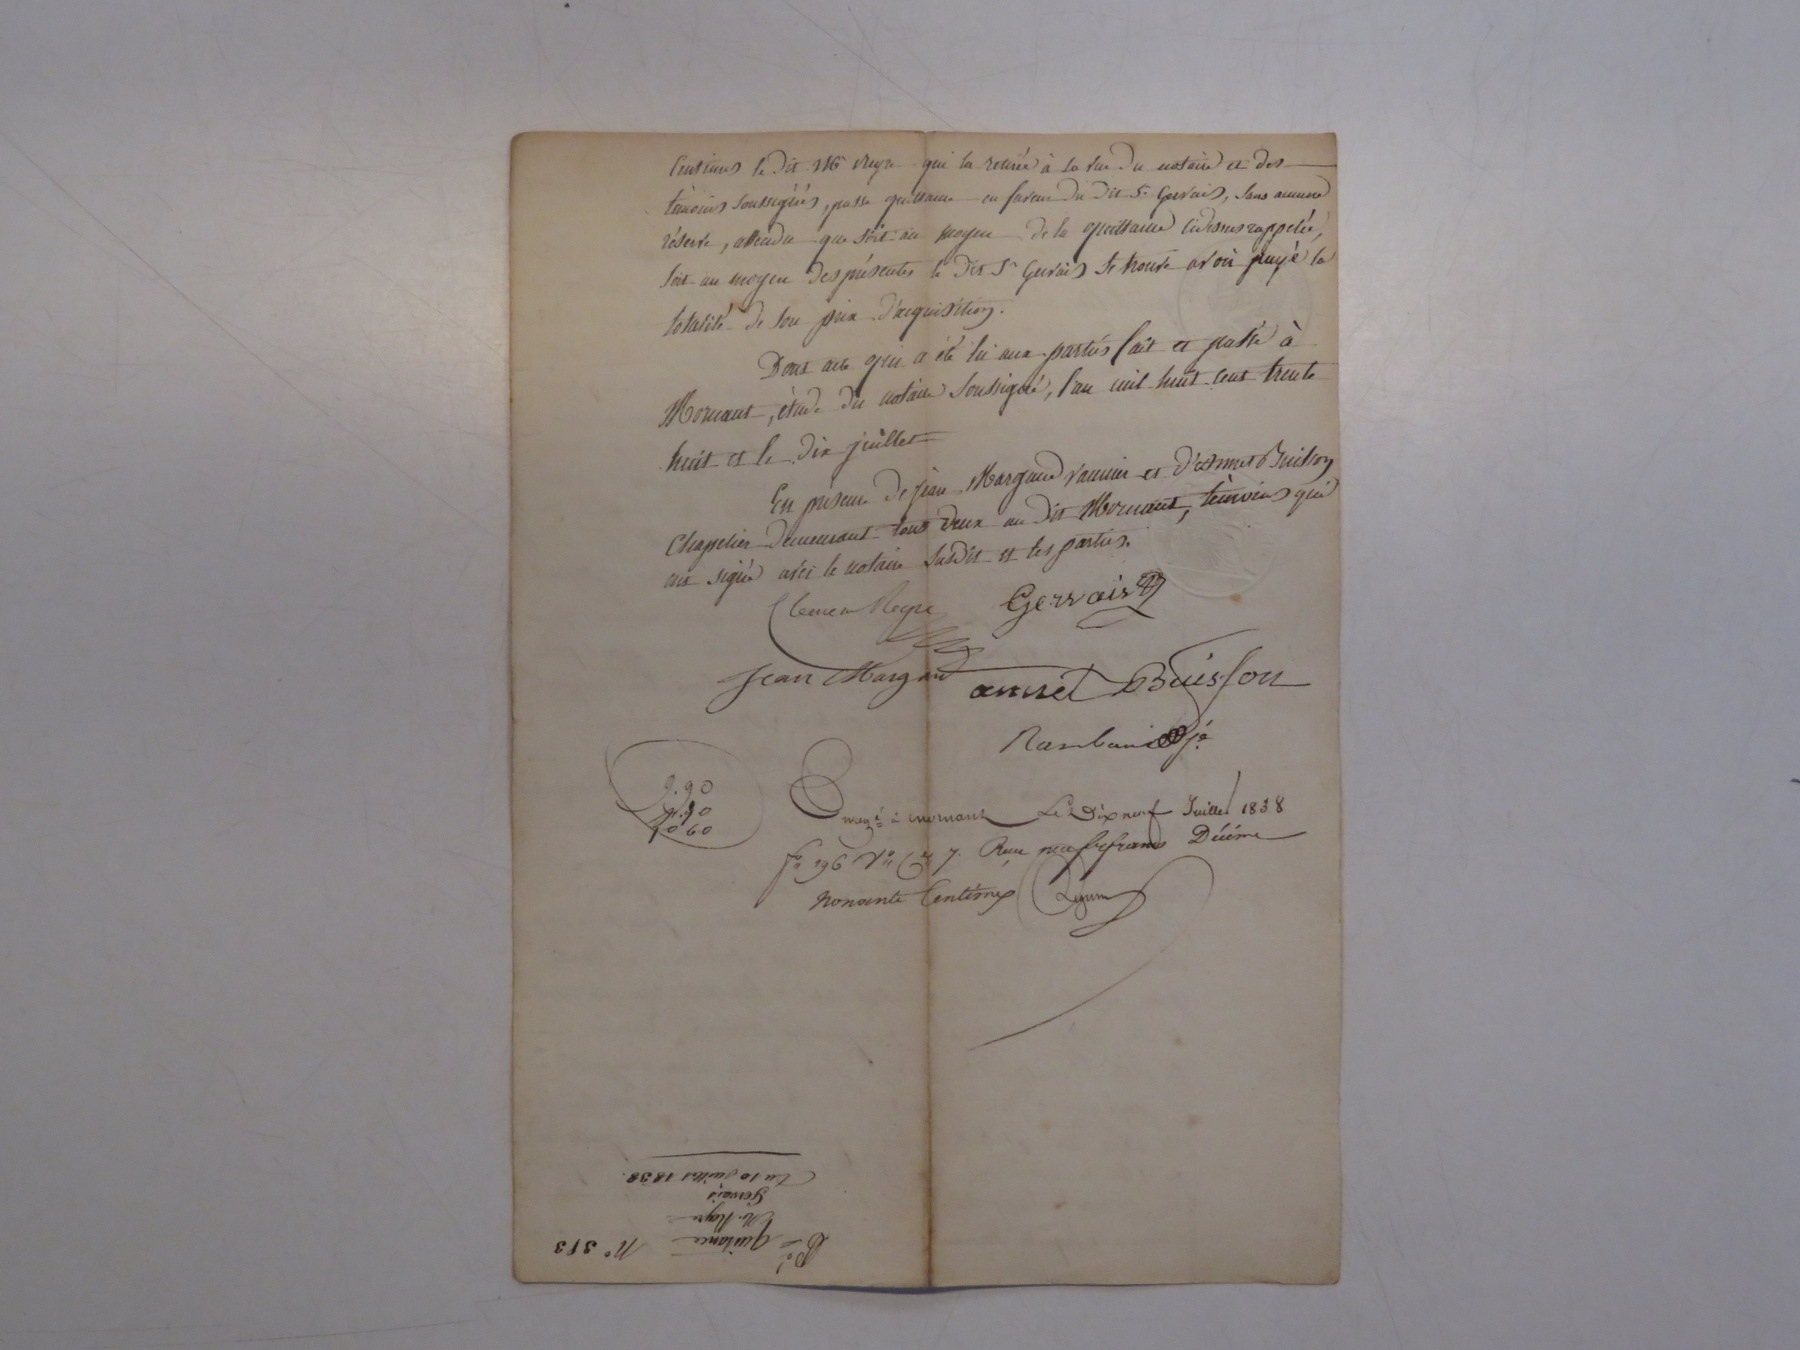 Centimes le dit Mr Reyre qui la retirée à la vue du notaire et des
témoins soussignés, passe quittance en faveur du dit Sr Gervais, sans aucune
réserve, attendu que soit au moyen de la quittance cidessus rappelée,
soit au moyen des présentes le dit Sr Gervais se trouve avoir payé la
totalité de son prix d'acquisition.
Dont acte qui a été lu aux parties fait et passé à
Mornant, étude du notaire soussigné, l'an mil huit cent trente
huit et le dix juillet
En présence de Jean Margand vannier et d'Asmet Buisson
Chapelier demeurant tous deux au dit Mornant, témoins qui
ont signé avec le notaire susdit et les parties.
Reyre Gervais
Jean Margand Buisson
9.90
.90
10 80
à Mornant Le Dix neuf Juillet 1838
fo 196 Vo Ce 7. Reçu neuf francs Décime
nonante Centimes
No 513
Quittance
Mr Reyre
Gervais
Du 10 juillet 1838.